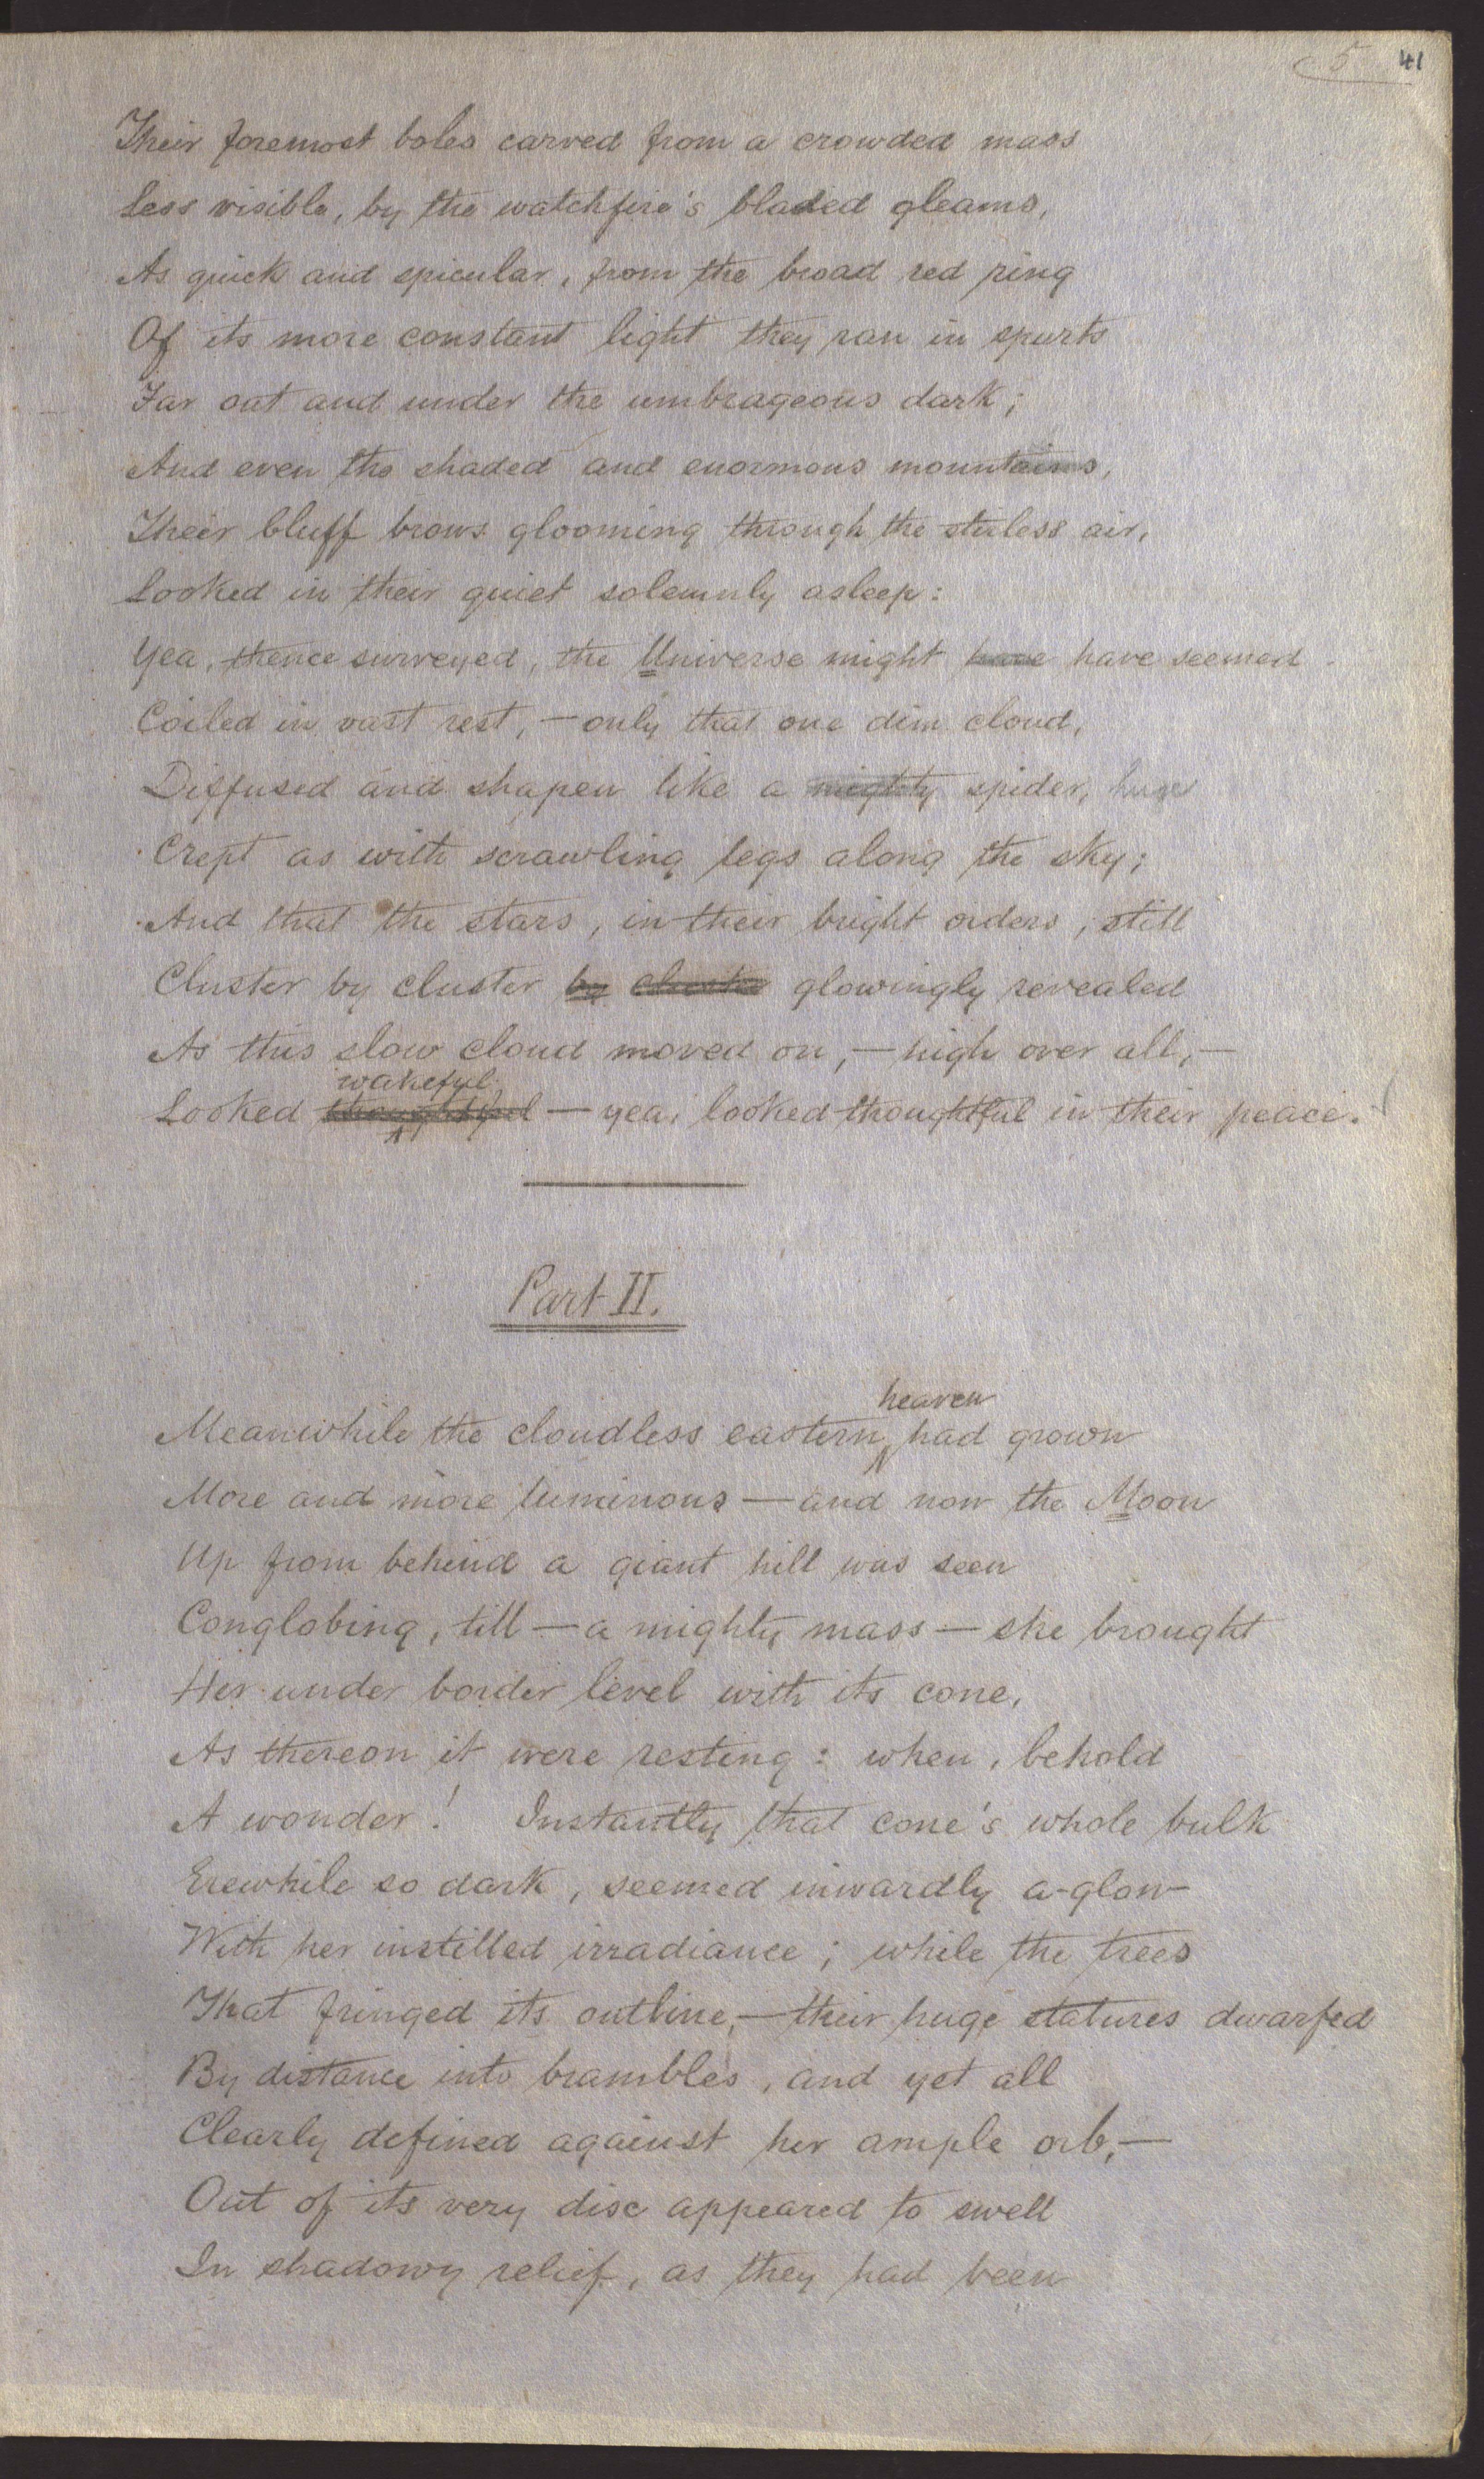 5 41
Their foremost boles carved from a crowded mass
Less visible, by the watchfire's bladed gleams,
As quick and spicular, from the broad red ring
Of its more constant light they ran in spurts
Far out and under the umbrageous dark;
And even the shaded and enormous mountains,
Their bluff brows glooming through the stirless air,
Looked in their quiet solemnly asleep:
Yea, thence surveyed, the Universe might have have seemed
Coiled in vast rest, — only that one dim cloud,
Diffused and shapen like a mighty spider, huge
Crept as with scrawling legs along the sky;
And that the stars, in their bright orders, still
Cluster by cluster by cluster glowingly revealed
As this slow cloud moved on, — high over all, —
wakeful
Looked thoughtful — yea, looked thoughtful in their peace.
Part II.
heaven
Meanwhile the cloudless eastern had grown
More and more luminous — and now the Moon
Up from behind a giant hill was seen
Conglobing, till — a mighty mass — she brought
Her under border level with its cone,
As thereon it were resting: when, behold
A wonder! Instantly that cone's whole bulk
Erewhile so dark, seemed inwardly a-glow
With her instilled irradiance; while the trees
That fringed its outline, — their huge statures dwarfed
By distance into brambles, and yet all
Clearly defined against her ample orb, —
Out of its very disc appeared to swell
In shadowy relief, as they had been